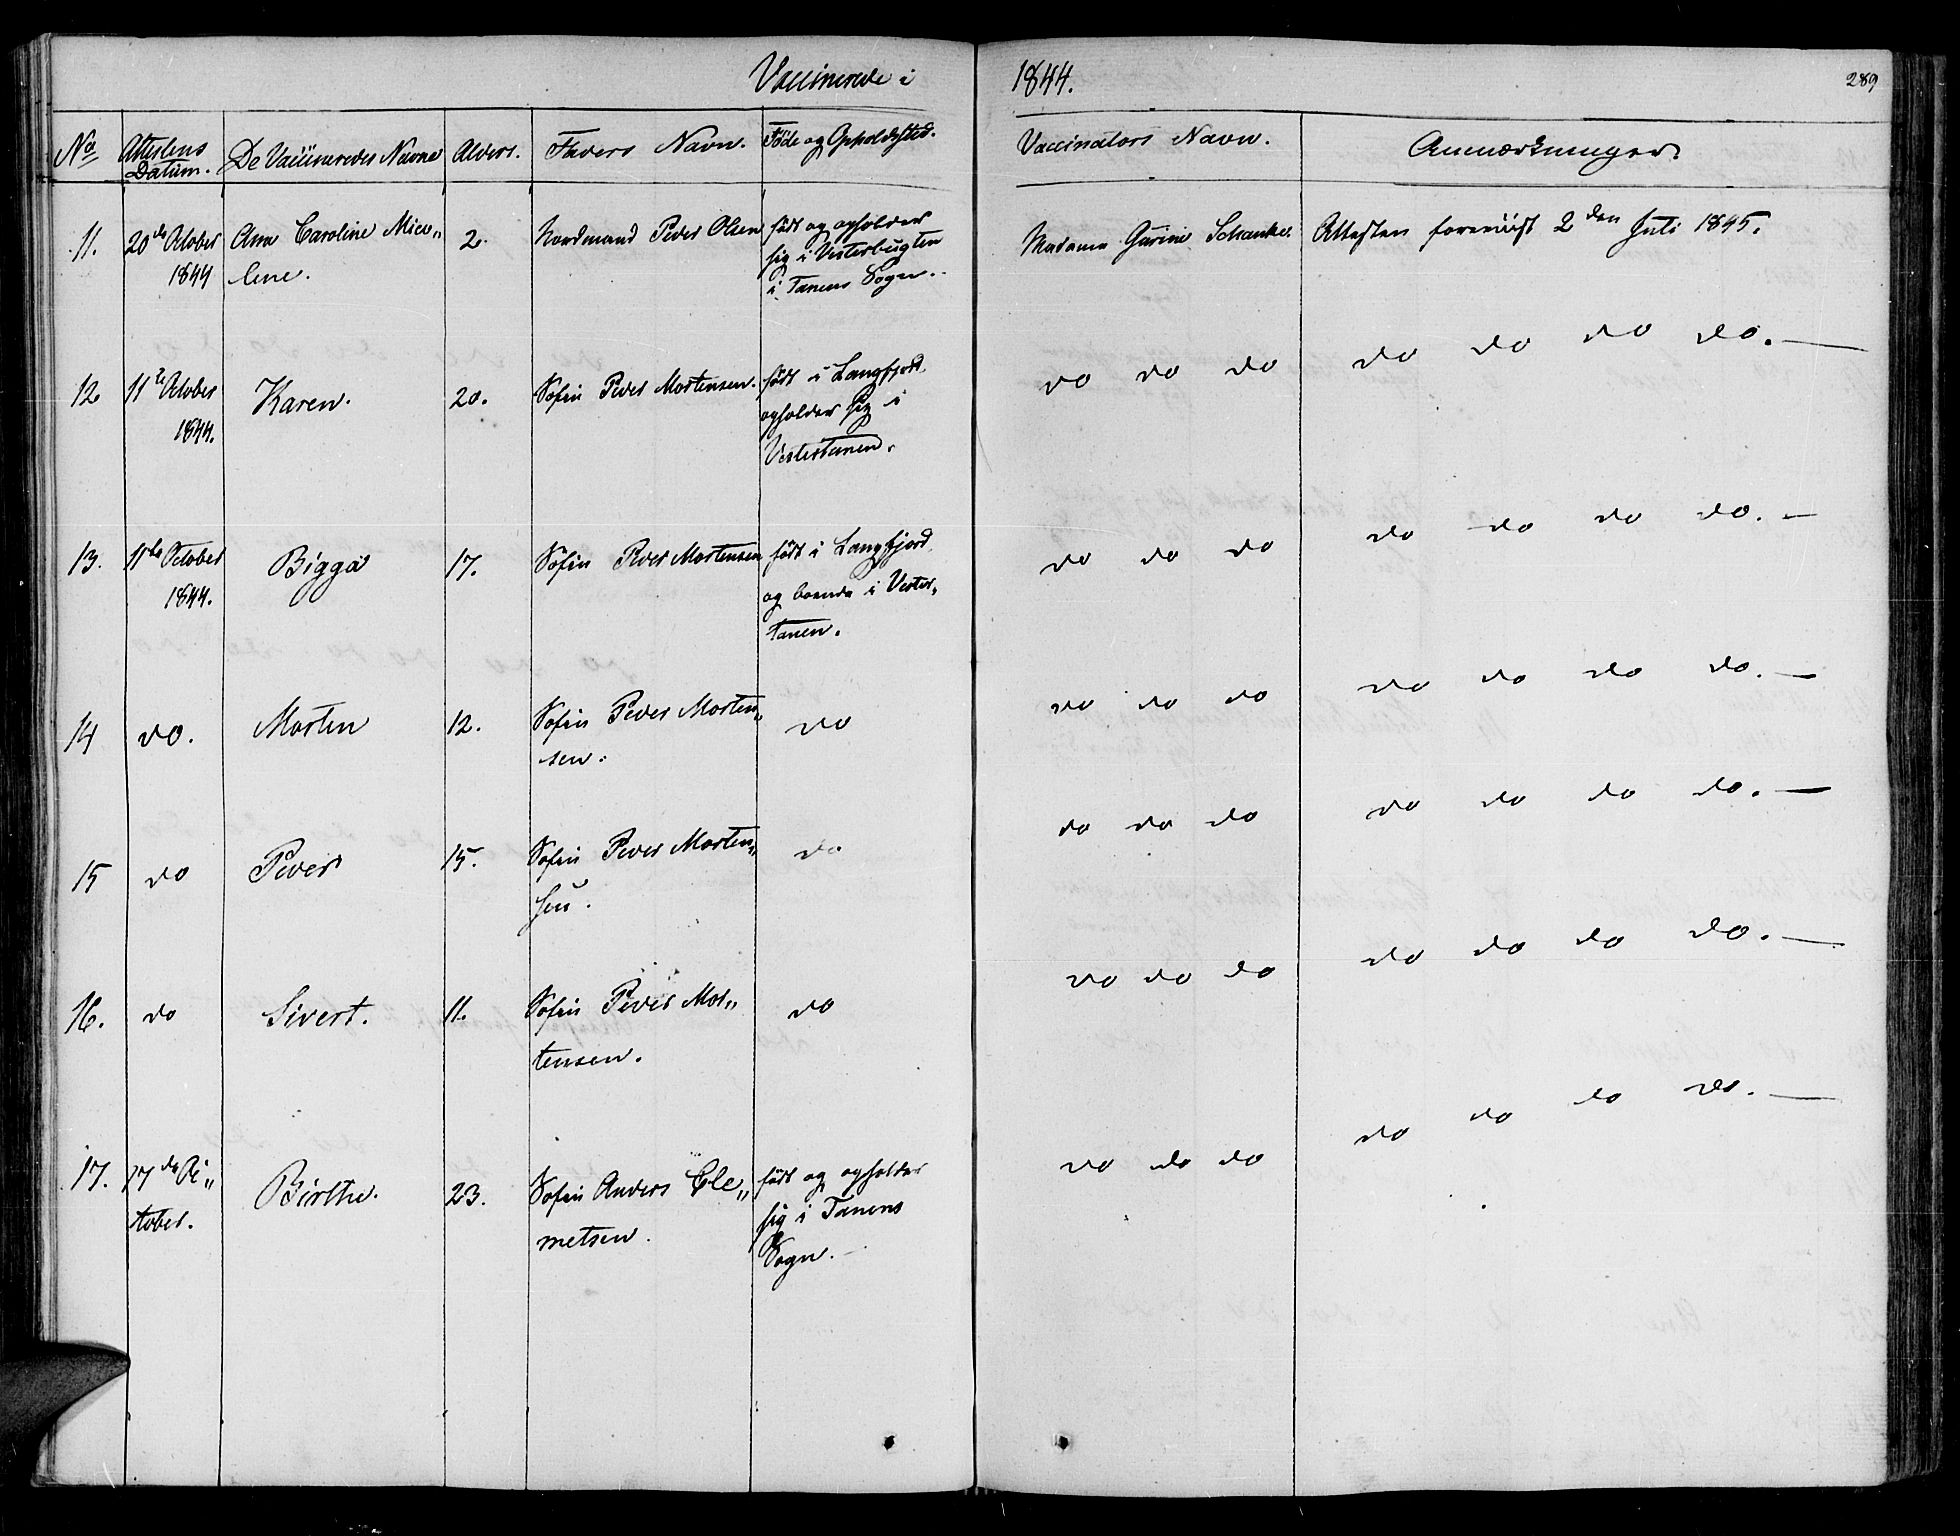 Vaccinerede i 1844. 289
No Attestens Datum. De Vaccineredes Navne Alders. Faders Navn. Føde og Opholdssted. Vaccinators Navn. Anmærkninger.
11. 20de October Ane Caroline Mica„ 2. Nordmand Peder Olsen født og opholder Madame Gurine Schanke. Attesten foreviist 2den Juli 1845.
1844 lene. sig i Vesterbugten
i Tanens Sogn.
12. 11te October Karen. 20. Søfin Peder Mortensen. født i Langfjord, do do do do do do do. —
1844. opholder sig i
Vestertanen.
13. 11te October Bigga 17. Søfin Peder Mortensen født i Langfjord, do do do do do do do. —
1844. og boende i Vester„
tanen.
14 do. Morten 12. Søfin Peder Morten„ do do do do do do do do. —
sen.
15 do Peder 15. Søfin Peder Morten„ do do do do do do do do. —
sen.
16. do Sivert. 11. Søfin Peder Mor„ do do do do do do do do. —
tensen.
17. 17de Oc„ Birthe. 23. Søfin Anders Cle„ født og opholder do do do do do do do. —
tober. metsen. sig i Tanens
Sogn. —